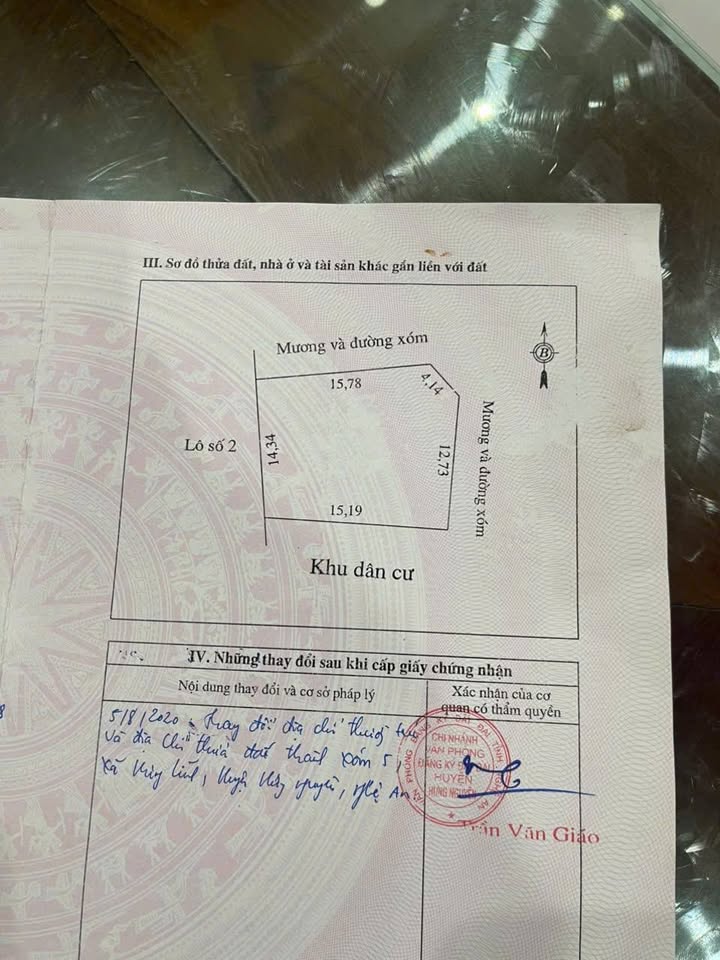 III. Sơ đồ thửa đất, nhà ở và tài sản khác gắn liền với đất
Mương và đường xóm
B
15,78
4,14
Lô số 2
14,34
12,73
Mương và đường xóm
15,19
Khu dân cư
IV. Những thay đổi sau khi cấp giấy chứng nhận
Nội dung thay đổi và cơ sở pháp lý
Xác nhận của cơ quan có thẩm quyền
5/8/2020: Thay đổi địa chỉ thường trú
và địa chỉ thửa đất thành xóm 5,
xã Hưng Lĩnh, huyện Hưng Nguyên, Nghệ An.
CHI NHÁNH
VĂN PHÒNG
ĐĂNG KÝ ĐẤT ĐAI
HUYỆN
HƯNG NGUYÊN
Trần Văn Giáo